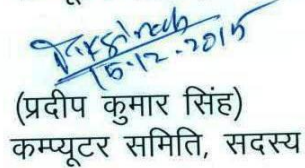 15-12-2015
(प्रदीप कुमार सिंह)
कम्प्यूटर समिति, सदस्य